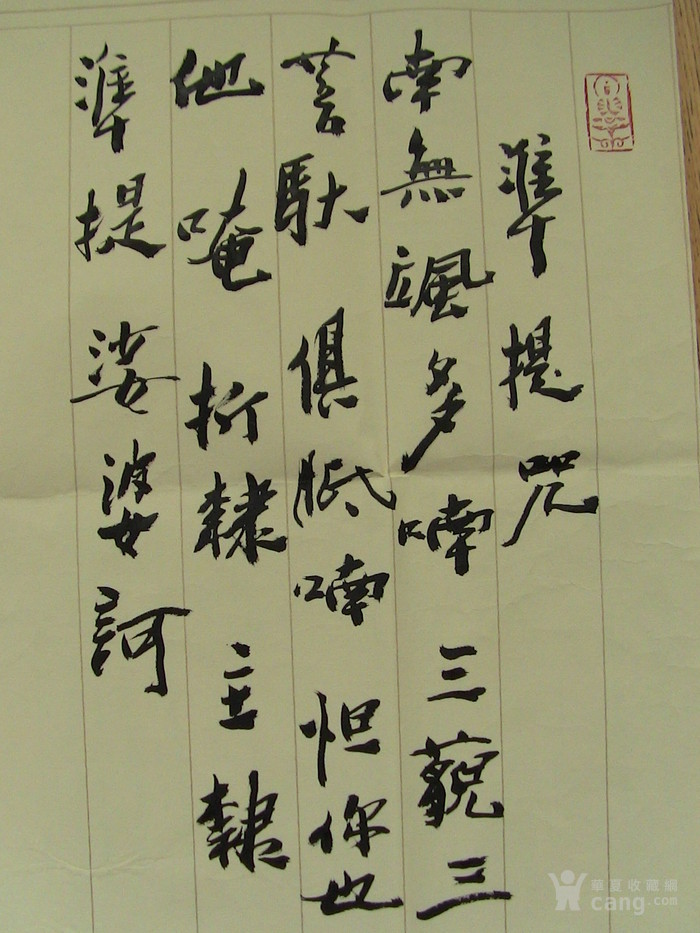 準提咒
南無颯多喃三藐三
菩馱俱胝喃怛你也
他唵折隸主隸
準提娑婆訶
華夏收藏網
cang.com